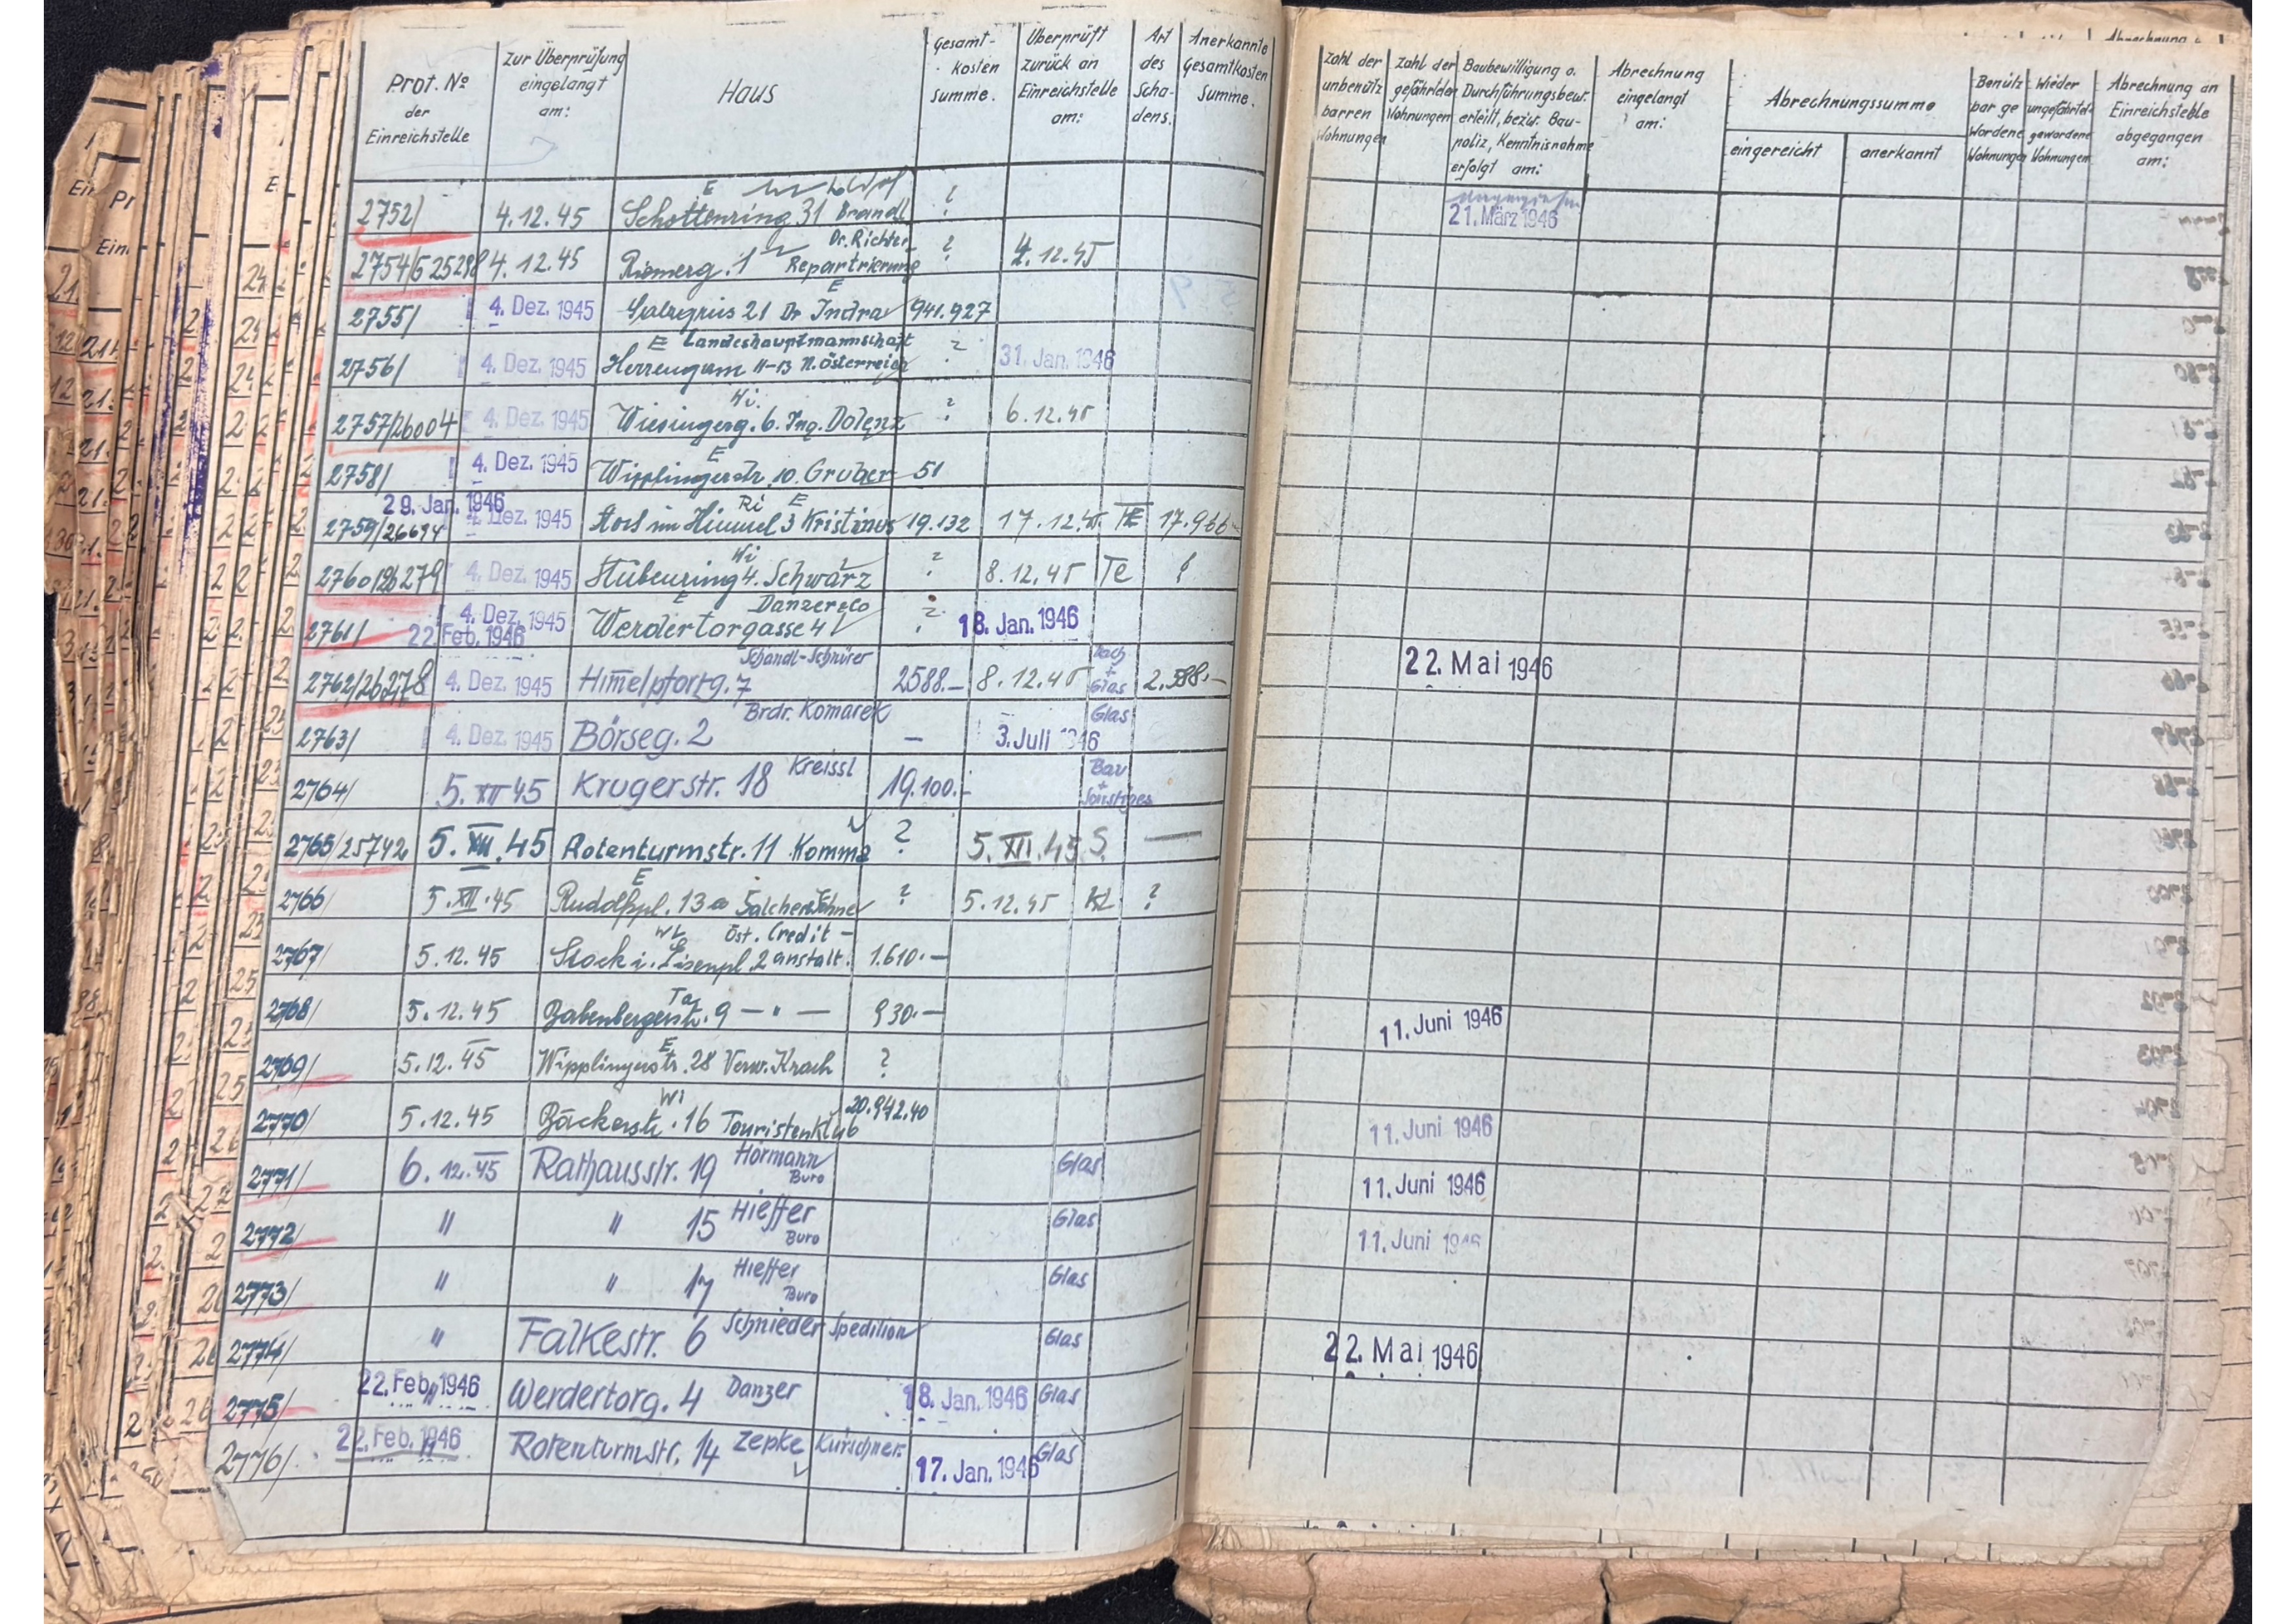 Prot. № der Einreichstelle | Zur Überprüfung eingelangt am: | Haus | Gesamt-kosten summe. | Überprüft zurück an Einreichstelle am: | Art des Scha-dens. | Anerkannte Gesamtkosten Summe. | Zahl der unbenütz baren Wohnungen | Zahl der gefährdeten Wohnungen | Baubewilligung o. Durchführungsbew. erteilt, bezw. Bau-poliz. Kenntnisnahme erfolgt am: | Abrechnung eingelangt am: | Abrechnungssumme eingereicht | anerkannt | Benütz bar ge wordene Wohnungen | Wieder ungefährdet gewordene Wohnungen | Abrechnung an Einreichstelle abgegangen am:
2752/ 4.12.45 E Schottenring 31 Brandl ? 21. März 1946
2754/625298 4.12.45 Riemerg. 1 Dr. Richter Repartrierung ? 4.12.45
2755/ 4. Dez. 1945 E Salzgries 21 Dr Indra 941.927
2756/ 4. Dez. 1945 E Landeshauptmannschaft Herrengasse 11-13 N.Österreich ? 31. Jan. 1946
2757/26004 4. Dez. 1945 Wi. Wiesingerg. 6. Ing. Dolenz ? 6.12.45
2758/ 4. Dez. 1945 E Wipplingerstr. 10. Gruber 51
29. Jan. 1946
2759/26694 4. Dez. 1945 Ri E Stoß im Himmel 3 Kristinus 19.132 17.12.45. TE 17.966
2760/26279 4. Dez. 1945 Wi Stubenring 4. Schwarz ? 8.12.45 Te ?
2761/ 4. Dez. 1945 22. Feb. 1946 E Danzer & Co Werdertorgasse 4 ? 18. Jan. 1946
2762/26278 4. Dez. 1945 Schandl-Schnürer Himelpfortg. 7 2588.- 8.12.45 Dach + Glas 2.588.- 22. Mai 1946
2763/ 4. Dez. 1945 Brdr. Komarek Börseg. 2 — 3. Juli 1946 Glas
2764/ 5. XII 45 Krugerstr. 18 Kreissl 19.100.- Bau + Sonstiges
2765/25742 5. XII. 45 Rotenturmstr. 11 Komma ? 5. XII. 45 S. —
2766 5. XII. 45 E Rudolfspl. 13a Salcher&Söhne ? 5.12.45 KL ?
2767/ 5.12.45 Öst. Credit- Stock i. Eisenpl. 2 anstalt. 1.610.-
2768/ 5.12.45 Ta Babenbergerstr. 9 — " — 930.- 11. Juni 1946
2769/ 5.12.45 E Wipplingerstr. 28 Verw. Krach ?
2770/ 5.12.45 Wi Bäckerstr. 16 Touristenklub 20.942.40 11. Juni 1946
2771/ 6.12.45 Rathausstr. 19 Hörmann Büro Glas 11. Juni 1946
2772/ " " 15 Hieffer Büro Glas 11. Juni 1946
2773/ " " 17 Hieffer Büro Glas
2774/ " Falkestr. 6 Schnieder Spedition Glas 22. Mai 1946
2775/ 22. Feb. 1946 Werdertorg. 4 Danzer 18. Jan. 1946 Glas
2776/ 22. Feb. 1946 Rotenturmstr. 14 Zepke Kürschner. 17. Jan. 1946 Glas